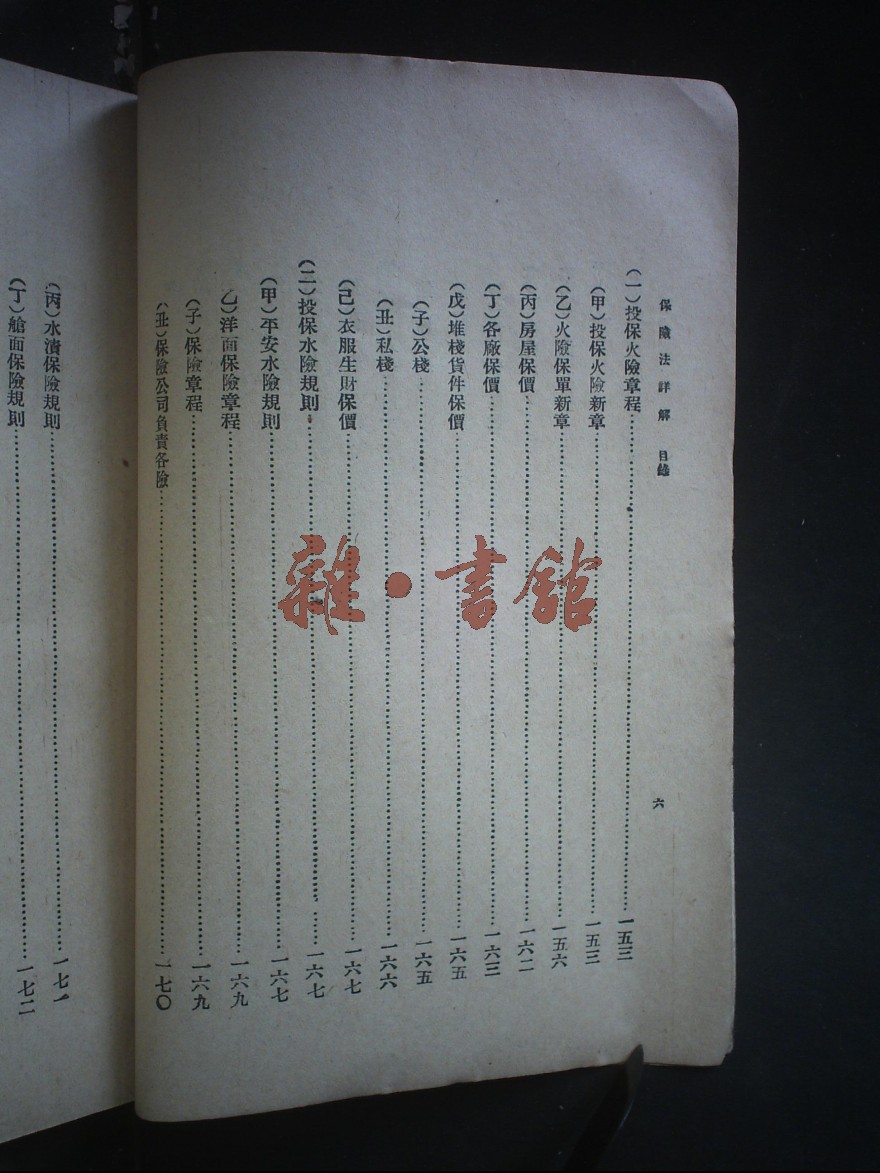 保險法詳解 目錄 六
(一)投保火險章程……一五三
(甲)投保火險新章……一五三
(乙)火險保單新章……一五六
(丙)房屋保價……一六二
(丁)各廠保價……一六三
(戊)堆棧貨件保價……一六五
(子)公棧……一六五
(丑)私棧……一六六
(己)衣服生財保價……一六七
(二)投保水險規則……一六七
(甲)平安水險規則……一六七
乙)洋面保險章程……一六九
(子)保險章程……一六九
(丑)保險公司負責各險……一七〇
(丙)水漬保險規則……一七一
(丁)艙面保險規則……一七二
雜·書館